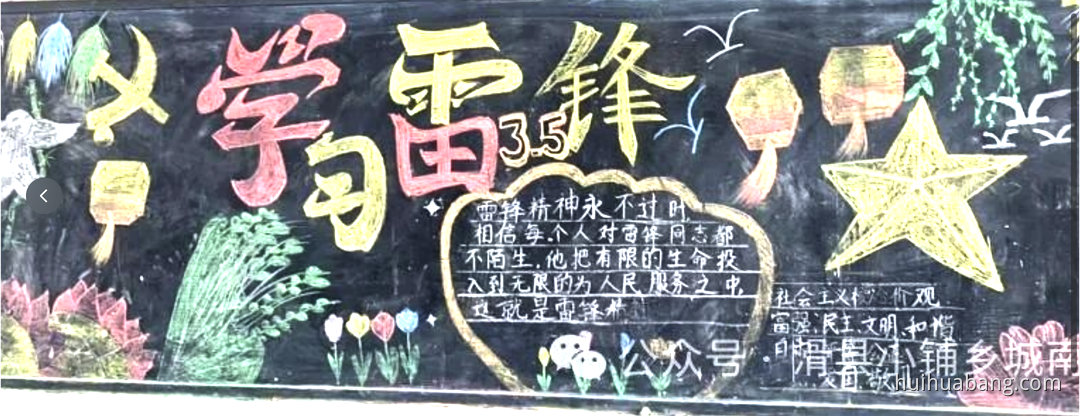 學习雷锋
3.5
雷锋精神永不过时
相信每个人对雷锋同志都
不陌生,他把有限的生命投
入到无限的为人民服务之中
这就是雷锋精
社会主义核心价观
富强,民主,文明,和谐
公众号·滑县小铺乡城南
huihuabang.com